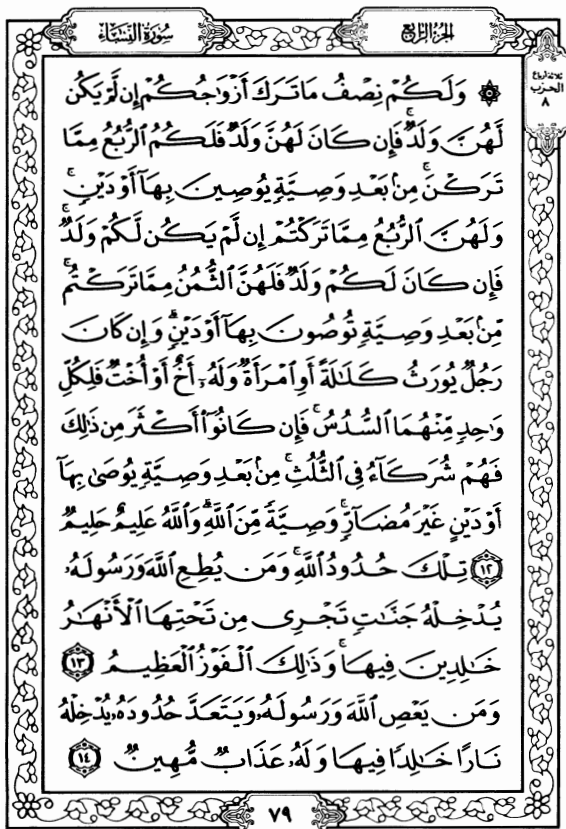 سُورَةُ النِّسَاءِ
الجُزْءُ الرَّابِعُ
ثلاثة أرباع
الحزب
٨
۞ وَلَكُمْ نِصْفُ مَا تَرَكَ أَزْوَٰجُكُمْ إِن لَّمْ يَكُن
لَّهُنَّ وَلَدٌ ۚ فَإِن كَانَ لَهُنَّ وَلَدٌ فَلَكُمُ ٱلرُّبُعُ مِمَّا
تَرَكْنَ ۚ مِنۢ بَعْدِ وَصِيَّةٍ يُوصِينَ بِهَآ أَوْ دَيْنٍ ۚ
وَلَهُنَّ ٱلرُّبُعُ مِمَّا تَرَكْتُمْ إِن لَّمْ يَكُن لَّكُمْ وَلَدٌ ۚ
فَإِن كَانَ لَكُمْ وَلَدٌ فَلَهُنَّ ٱلثُّمُنُ مِمَّا تَرَكْتُم ۚ
مِّنۢ بَعْدِ وَصِيَّةٍ تُوصُونَ بِهَآ أَوْ دَيْنٍ ۗ وَإِن كَانَ
رَجُلٌ يُورَثُ كَلَٰلَةً أَوِ ٱمْرَأَةٌ وَلَهُۥٓ أَخٌ أَوْ أُخْتٌ فَلِكُلِّ
وَٰحِدٍ مِّنْهُمَا ٱلسُّدُسُ ۚ فَإِن كَانُوٓا۟ أَكْثَرَ مِن ذَٰلِكَ
فَهُمْ شُرَكَآءُ فِى ٱلثُّلُثِ ۚ مِنۢ بَعْدِ وَصِيَّةٍ يُوصَىٰ بِهَآ
أَوْ دَيْنٍ غَيْرَ مُضَآرٍّ ۚ وَصِيَّةً مِّنَ ٱللَّهِ ۗ وَٱللَّهُ عَلِيمٌ حَلِيمٌ
١٢ تِلْكَ حُدُودُ ٱللَّهِ ۚ وَمَن يُطِعِ ٱللَّهَ وَرَسُولَهُۥ
يُدْخِلْهُ جَنَّٰتٍ تَجْرِى مِن تَحْتِهَا ٱلْأَنْهَٰرُ
خَٰلِدِينَ فِيهَا ۚ وَذَٰلِكَ ٱلْفَوْزُ ٱلْعَظِيمُ ١٣
وَمَن يَعْصِ ٱللَّهَ وَرَسُولَهُۥ وَيَتَعَدَّ حُدُودَهُۥ يُدْخِلْهُ
نَارًا خَٰلِدًا فِيهَا وَلَهُۥ عَذَابٌ مُّهِينٌ ١٤
٧٩